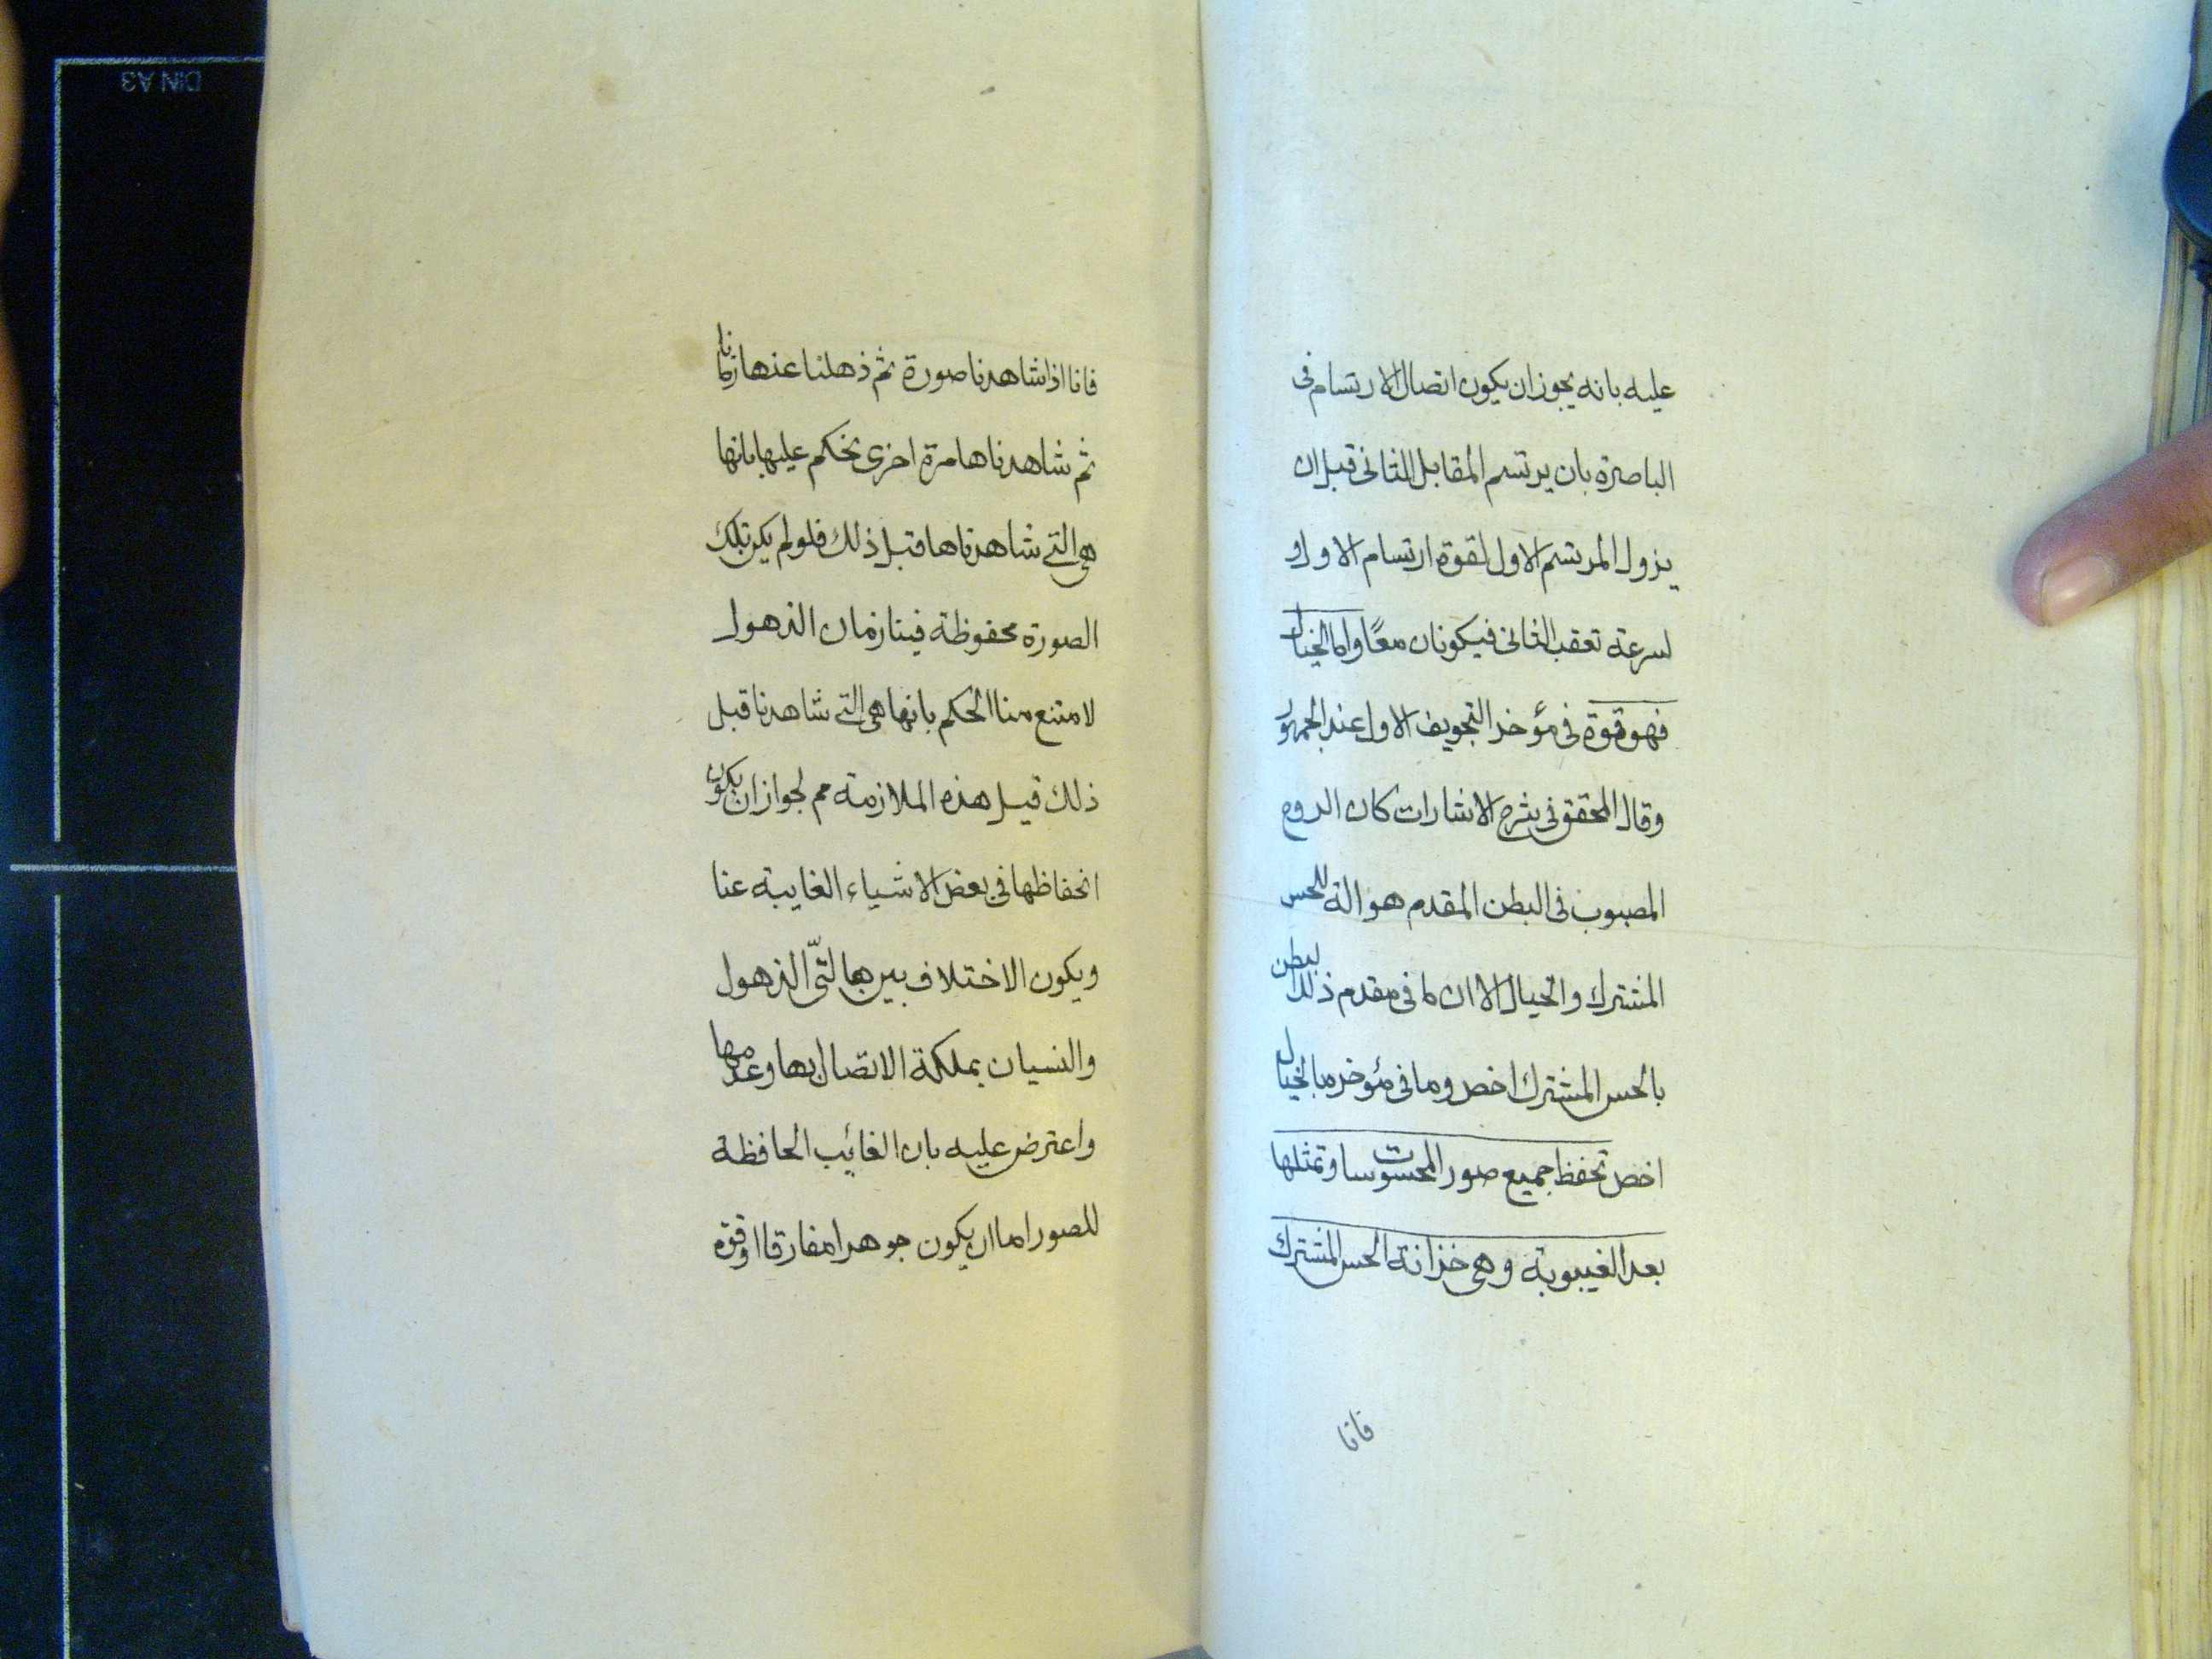 عليه بانه يجوز ان يكون اتصال الارتسام فى
الباصرة بان يرتسم المقابل الثانى قبل ان
يزول المرتسم الاول لقوة ارتسام الاول او
لسرعة تعقب الثانى فيكونان معًا واما الخيال
فهو قوة فى مؤخر التجويف الاول عند الجمهور
وقال المحقق فى شرح الاشارات كان الروح
المصبوب فى البطن المقدم هو الة للحس
المشترك والخيال الا ان ما فى مقدم ذلك البطن
بالحس المشترك اخص وما فى مؤخره بالخيال
اخص تحفظ جميع صور المحسوسات وتمثلها
بعد الغيبوبة وهى خزانة الحس المشترك
فانا
فانا اذا شاهدنا صورة ثم ذهلنا عنها زمانا
ثم شاهدناها مرة اخرى نحكم عليها بانها
هى التى شاهدناها قبل ذلك فلو لم يكن تلك
الصورة محفوظة فينا زمان الذهول
لامتنع منا الحكم بانها هى التى شاهدنا قبل
ذلك قيل هذه الملازمة مم لجواز ان يكون
انحفاظها فى بعض الاشياء الغايبة عنا
ويكون الاختلاف بين حالتى الذهول
والنسيان بملكة الاتصال بها وعدمها
واعترض عليه بان الغائب الحافظة
للصور اما ان يكون جوهرا مفارقا او قوة
DIN A3